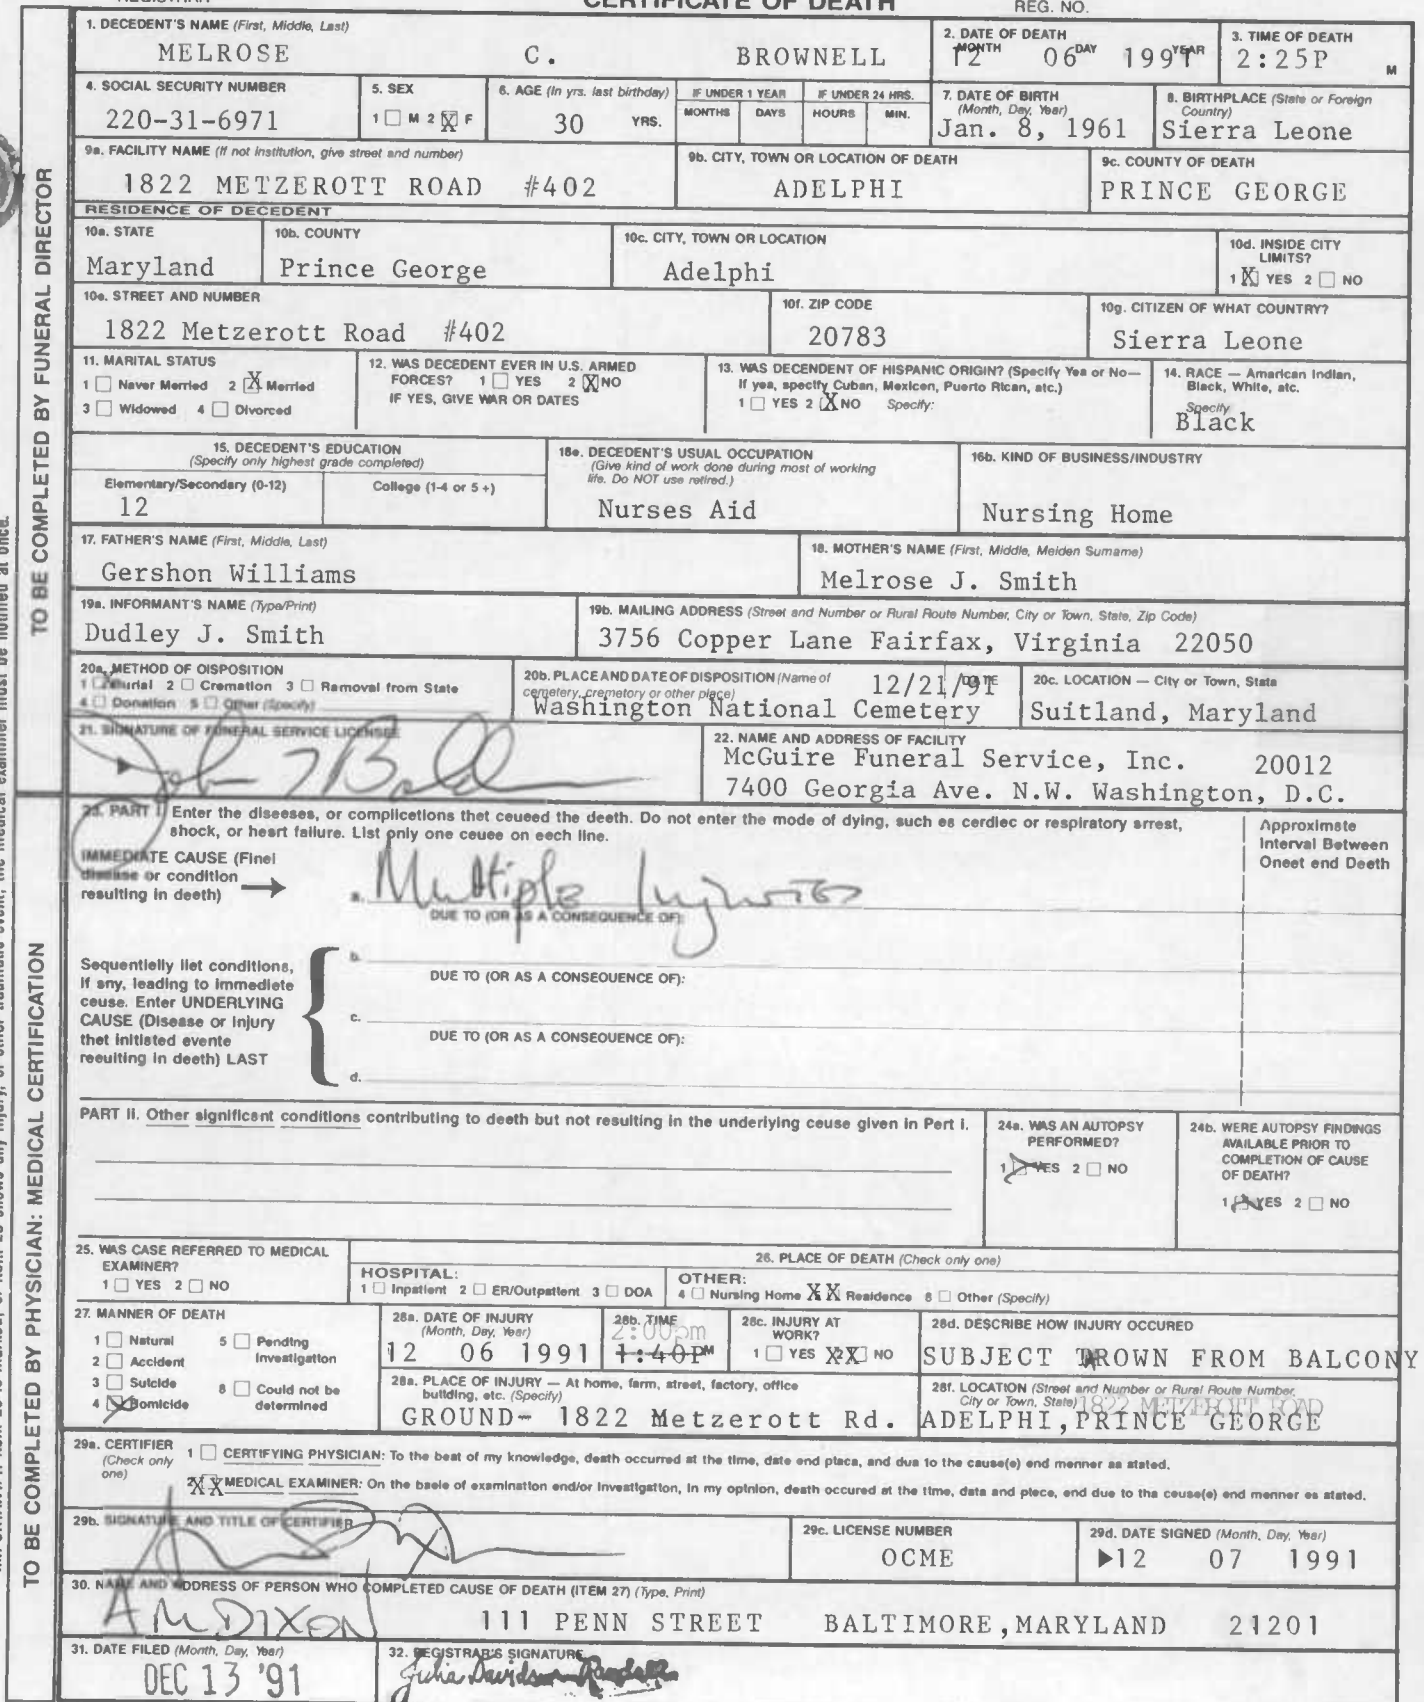 CERTIFICATE OF DEATH
REG. NO.
TO BE COMPLETED BY FUNERAL DIRECTOR
1. DECEDENT'S NAME (First, Middle, Last)
MELROSE C. BROWNELL
2. DATE OF DEATH
MONTH DAY YEAR
12 06 1991
3. TIME OF DEATH
2:25P M
4. SOCIAL SECURITY NUMBER
220-31-6971
5. SEX
1 M 2 X F
6. AGE (In yrs. last birthday)
30 YRS.
IF UNDER 1 YEAR
MONTHS DAYS
IF UNDER 24 HRS.
HOURS MIN.
7. DATE OF BIRTH
(Month, Day, Year)
Jan. 8, 1961
8. BIRTHPLACE (State or Foreign
Country)
Sierra Leone
9a. FACILITY NAME (If not institution, give street and number)
1822 METZEROTT ROAD #402
9b. CITY, TOWN OR LOCATION OF DEATH
ADELPHI
9c. COUNTY OF DEATH
PRINCE GEORGE
RESIDENCE OF DECEDENT
10a. STATE
Maryland
10b. COUNTY
Prince George
10c. CITY, TOWN OR LOCATION
Adelphi
10d. INSIDE CITY
LIMITS?
1 X YES 2 NO
10e. STREET AND NUMBER
1822 Metzerott Road #402
10f. ZIP CODE
20783
10g. CITIZEN OF WHAT COUNTRY?
Sierra Leone
11. MARITAL STATUS
1 Never Married 2 X Married
3 Widowed 4 Divorced
12. WAS DECEDENT EVER IN U.S. ARMED
FORCES? 1 YES 2 X NO
IF YES, GIVE WAR OR DATES
13. WAS DECENDENT OF HISPANIC ORIGIN? (Specify Yes or No—
If yes, specify Cuban, Mexican, Puerto Rican, etc.)
1 YES 2 X NO Specify:
14. RACE — American Indian,
Black, White, etc.
Specify
Black
15. DECEDENT'S EDUCATION
(Specify only highest grade completed)
Elementary/Secondary (0-12)
12
College (1-4 or 5+)
16a. DECEDENT'S USUAL OCCUPATION
(Give kind of work done during most of working
life. Do NOT use retired.)
Nurses Aid
16b. KIND OF BUSINESS/INDUSTRY
Nursing Home
17. FATHER'S NAME (First, Middle, Last)
Gershon Williams
18. MOTHER'S NAME (First, Middle, Maiden Surname)
Melrose J. Smith
19a. INFORMANT'S NAME (Type/Print)
Dudley J. Smith
19b. MAILING ADDRESS (Street and Number or Rural Route Number, City or Town, State, Zip Code)
3756 Copper Lane Fairfax, Virginia 22050
20a. METHOD OF DISPOSITION
1 Burial 2 Cremation 3 Removal from State
4 Donation 5 Other (Specify)
20b. PLACE AND DATE OF DISPOSITION (Name of
cemetery, crematory or other place)
12/21/91
Washington National Cemetery
20c. LOCATION — City or Town, State
Suitland, Maryland
21. SIGNATURE OF FUNERAL SERVICE LICENSEE
22. NAME AND ADDRESS OF FACILITY
McGuire Funeral Service, Inc. 20012
7400 Georgia Ave. N.W. Washington, D.C.
TO BE COMPLETED BY PHYSICIAN: MEDICAL CERTIFICATION
23. PART I Enter the diseases, or complications that caused the death. Do not enter the mode of dying, such as cardiac or respiratory arrest,
shock, or heart failure. List only one cause on each line.
Approximate
Interval Between
Onset and Death
IMMEDIATE CAUSE (Final
disease or condition
resulting in death)
a. Multiple Injuries
DUE TO (OR AS A CONSEQUENCE OF):
Sequentially list conditions,
if any, leading to immediate
cause. Enter UNDERLYING
CAUSE (Disease or injury
that initiated events
resulting in death) LAST
b.
DUE TO (OR AS A CONSEQUENCE OF):
c.
DUE TO (OR AS A CONSEQUENCE OF):
d.
PART II. Other significant conditions contributing to death but not resulting in the underlying cause given in Part I.
24a. WAS AN AUTOPSY
PERFORMED?
1 YES 2 NO
24b. WERE AUTOPSY FINDINGS
AVAILABLE PRIOR TO
COMPLETION OF CAUSE
OF DEATH?
1 YES 2 NO
25. WAS CASE REFERRED TO MEDICAL
EXAMINER?
1 YES 2 NO
26. PLACE OF DEATH (Check only one)
HOSPITAL:
1 Inpatient 2 ER/Outpatient 3 DOA
OTHER:
4 Nursing Home XX Residence 6 Other (Specify)
27. MANNER OF DEATH
1 Natural 5 Pending
2 Accident Investigation
3 Suicide 6 Could not be
4 Homicide determined
28a. DATE OF INJURY
(Month, Day, Year)
12 06 1991
28b. TIME
2:00pm
1:40P M
28c. INJURY AT
WORK?
1 YES XX NO
28d. DESCRIBE HOW INJURY OCCURED
SUBJECT TROWN FROM BALCONY
28e. PLACE OF INJURY — At home, farm, street, factory, office
building, etc. (Specify)
GROUND- 1822 Metzerott Rd.
28f. LOCATION (Street and Number or Rural Route Number,
City or Town, State) 1822 METZEROTT ROAD
ADELPHI,PRINCE GEORGE
29a. CERTIFIER
(Check only
one)
1 CERTIFYING PHYSICIAN: To the best of my knowledge, death occurred at the time, date and place, and due to the cause(s) and manner as stated.
2 XX MEDICAL EXAMINER: On the basis of examination and/or investigation, in my opinion, death occured at the time, date and place, and due to the cause(s) and manner as stated.
29b. SIGNATURE AND TITLE OF CERTIFIER
29c. LICENSE NUMBER
OCME
29d. DATE SIGNED (Month, Day, Year)
12 07 1991
30. NAME AND ADDRESS OF PERSON WHO COMPLETED CAUSE OF DEATH (ITEM 27) (Type, Print)
A M. DIXON 111 PENN STREET BALTIMORE,MARYLAND 21201
31. DATE FILED (Month, Day, Year)
DEC 13 '91
32. REGISTRAR'S SIGNATURE
Julia Davidson-Randall